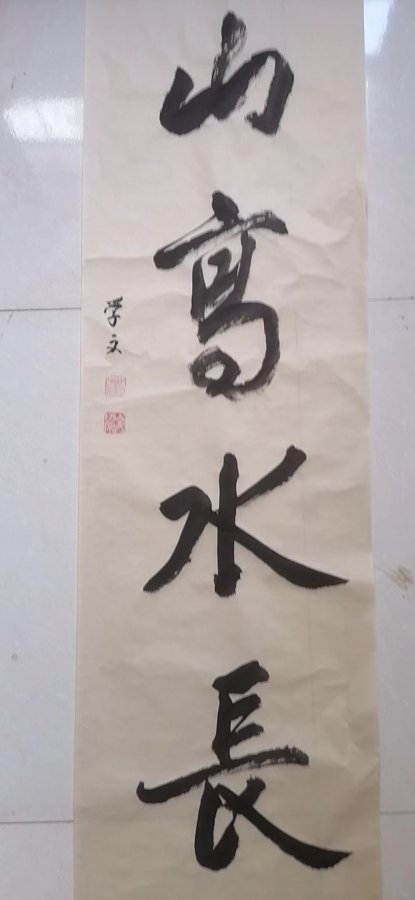 山高水長
学文